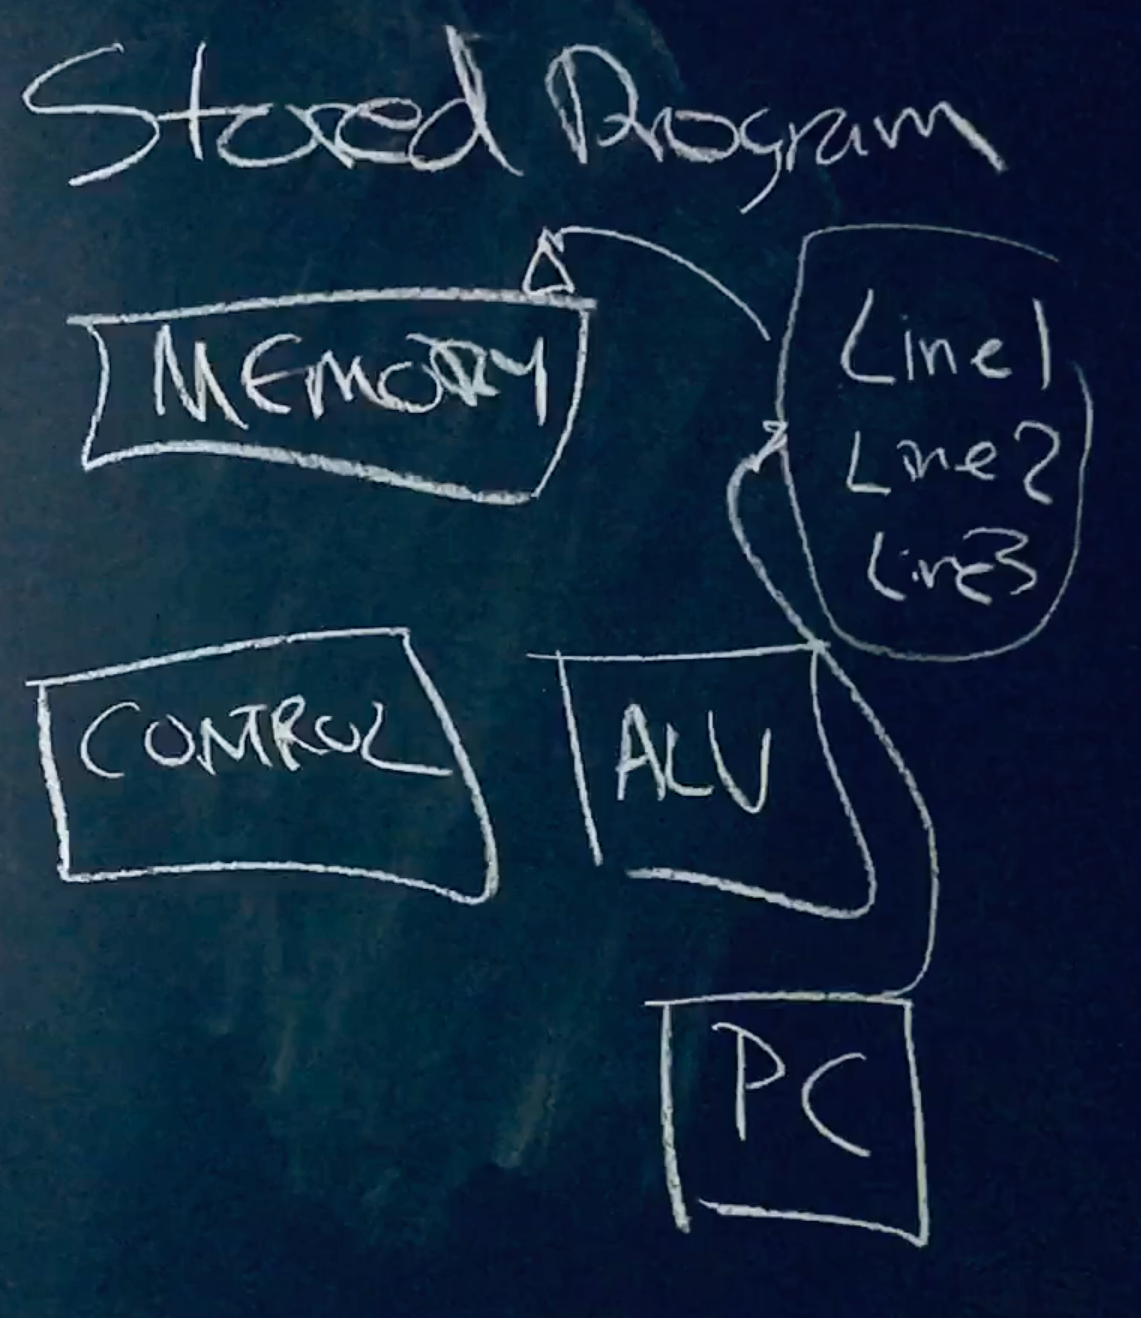 Stored Program
MEMORY
Line 1
Line 2
Line 3
CONTROL
ALU
PC